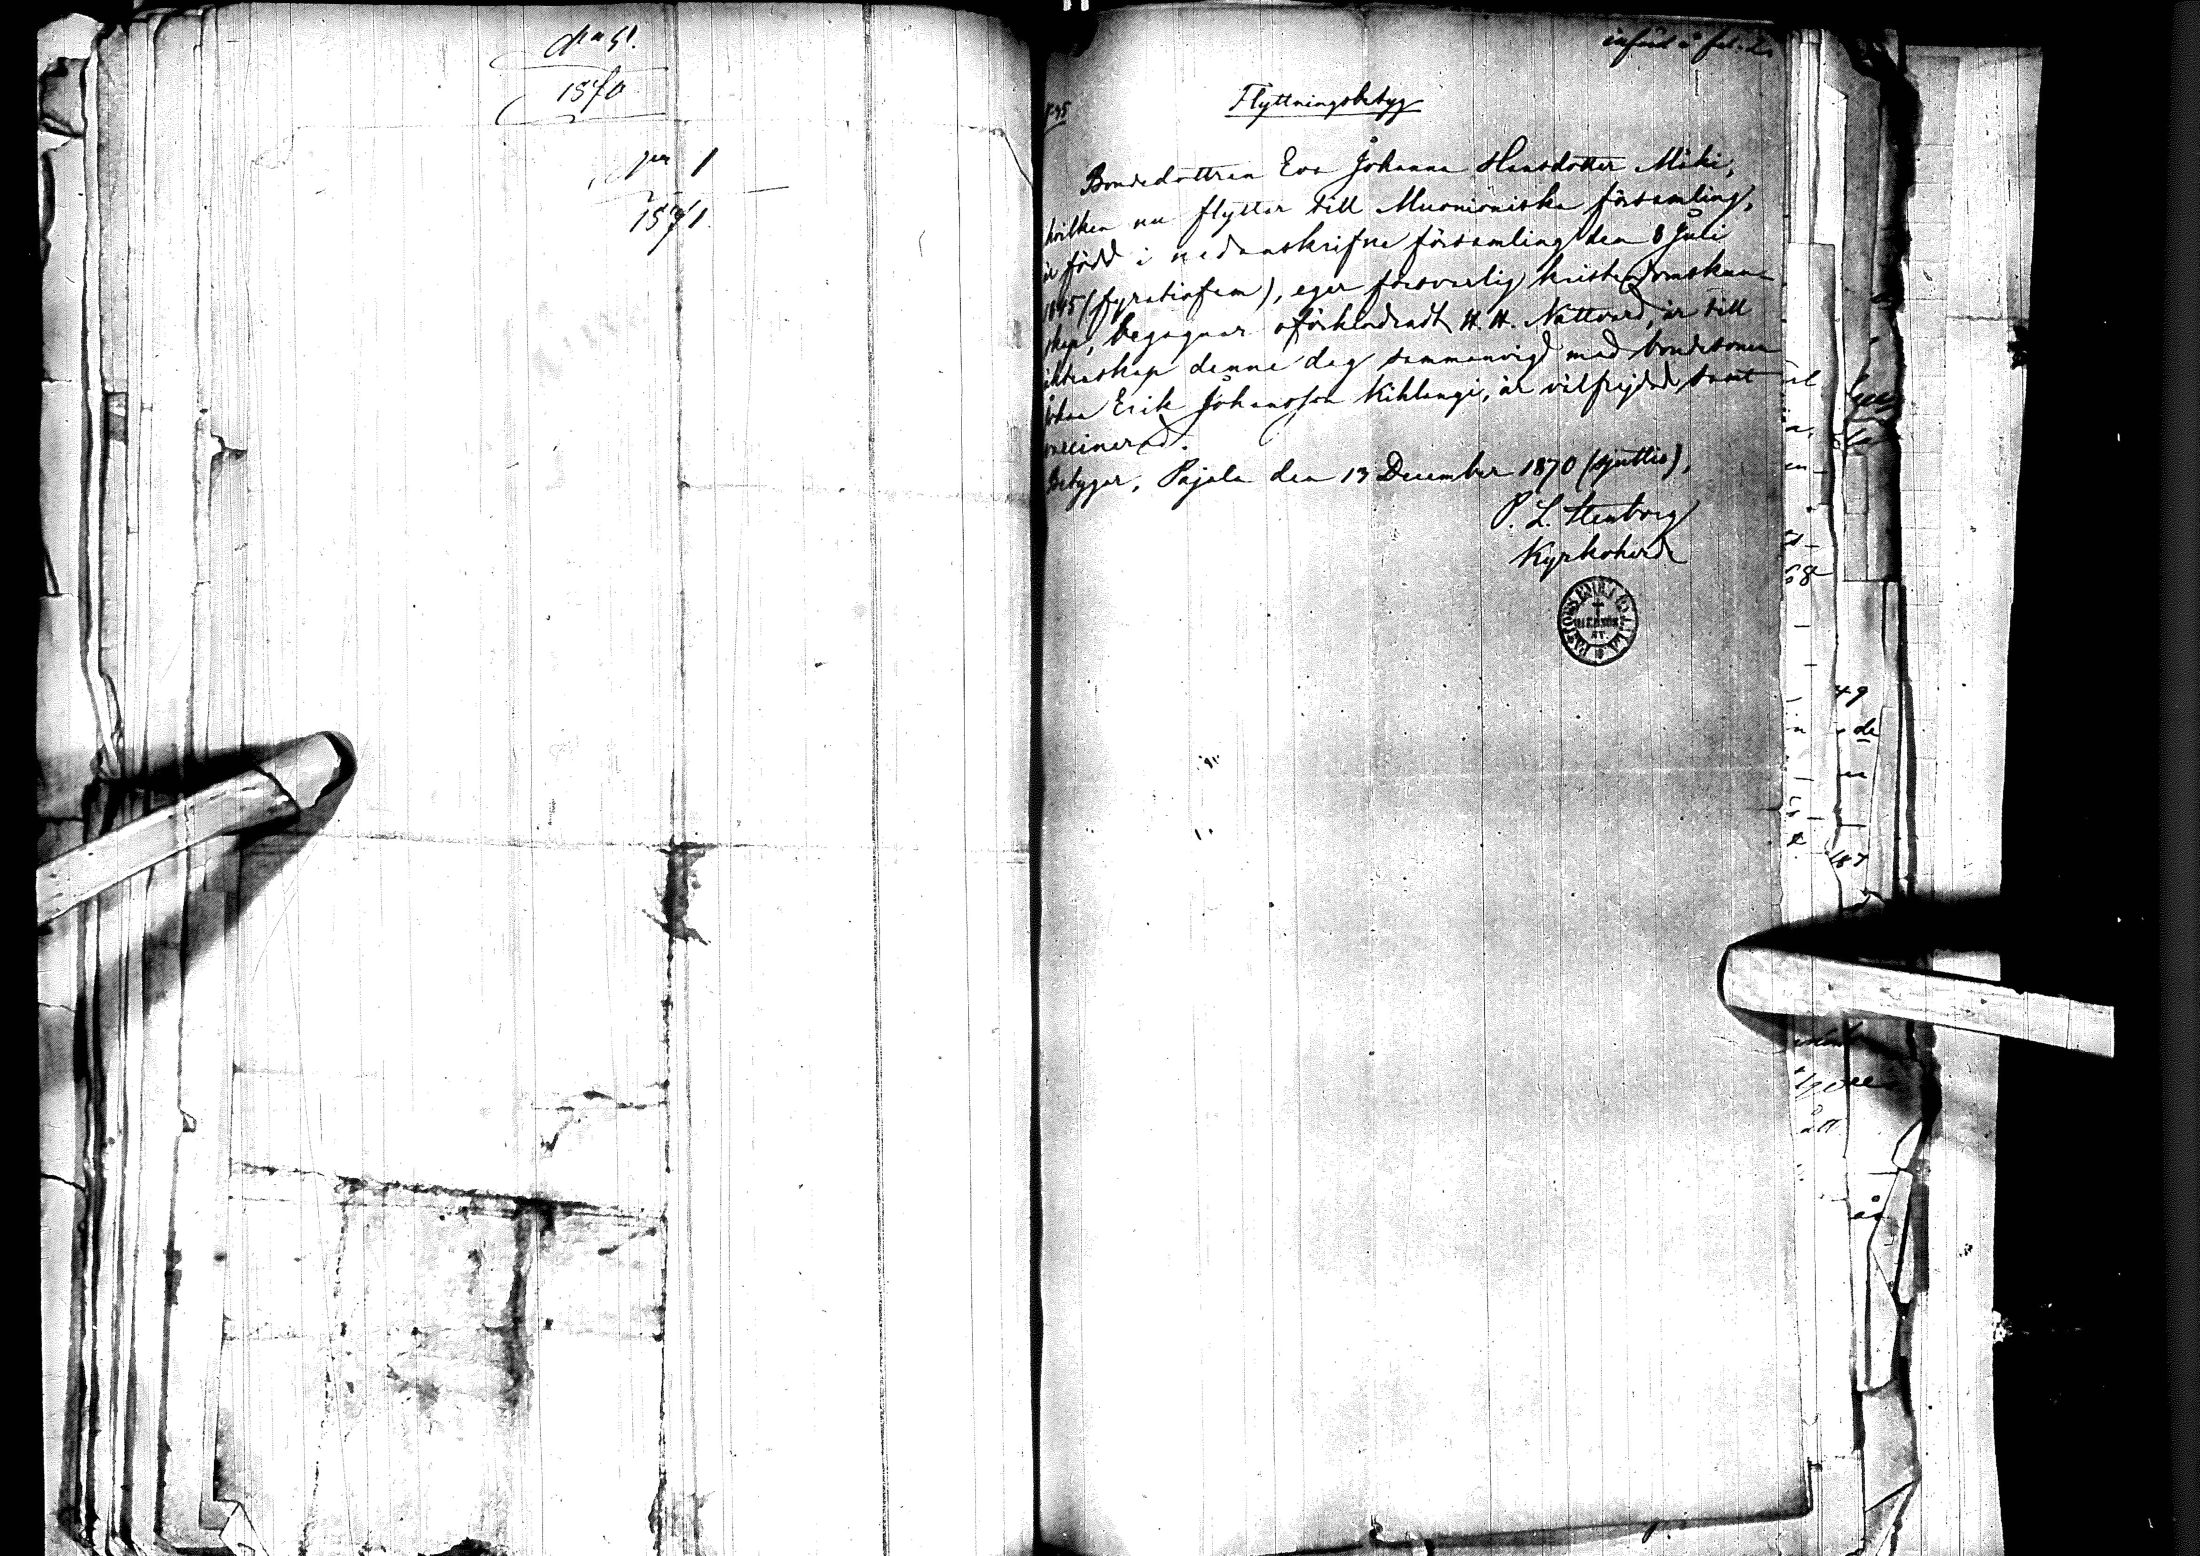 1870
1
1871.
införd å fol.
Flyttningsbetyg
Bondedottren Eva Johanna Hansdotter Mäki,
hvilken nu flyttar till Muonioniska församling,
är född i nedanskrifne församling den 8 Juli
1845 (fyratiofem), eger försvarlig kristendomskun-
skap, begagnar oförhindradt H. H. Nattvard, är till
äktenskap denna dag sammanvigd med bondesonen
Johan Erik Johansson Kihlangi, är välfrejdad samt
vaccinerad.
Betygar, Pajala den 13 December 1870 (sjuttio),
P. L. Stenborg
Kyrkoherde
49
de
187